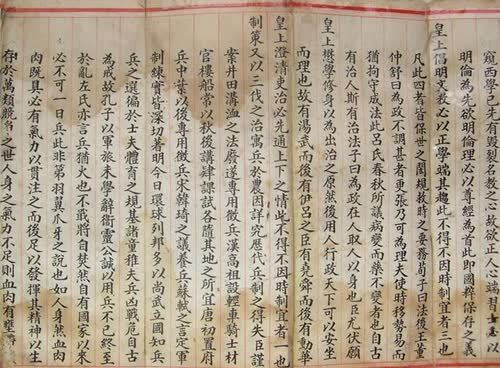 窺西學已先有毀裂名教之心故欲正人心端習士以
明倫為先欲明倫理必以尊經為首此即國粹保存之義
皇上倡明文教必以正學端其趨此不得不因時制宜者三也
凡此四者皆保世之閎規救時之要務荀子曰法後王董
仲舒曰為政不調甚者更張乃可為理夫使時移勢易而
猶拘守成法此呂氏春秋所譏病變而藥不變者也自古
有治人斯有治法子曰為政在人取人以身也臣尤伏願
皇上懋學修身以為出治之原然後用人行政天下可以安坐
而理也故有湯武而後有伊呂之臣有堯舜而後有勳華
皇上澄清吏治必先通上下之情此不得不因時制宜者一也
制策又以三代之治寓兵於農因詳究歷代兵制之得失臣謹
案井田溝洫之法廢遂專用徵兵漢高祖設輕車騎士材
官樓船常以秋後講肄課試各隨其地之所宜唐初置府
兵中葉以後專用徵兵宋韓琦之議養兵蘇軾之言定軍
制練實皆深切著明今日環球列邦多以尚武立國知兵
兵之選徧於士夫體育之規基諸童稚夫兵凶戰危自古
為戒故孔子以軍旅未學辭衛靈公誠以用兵不已終至
於亂左氏亦言兵猶火也不戢將自焚然自有國家以來
必不可一日兵此非第羽翼爪牙之說也如人身然血
肉既具必有氣力以貫注之而後足以發揮其精神以生
存於萬類競爭之世人身之氣力不足則血肉有壅